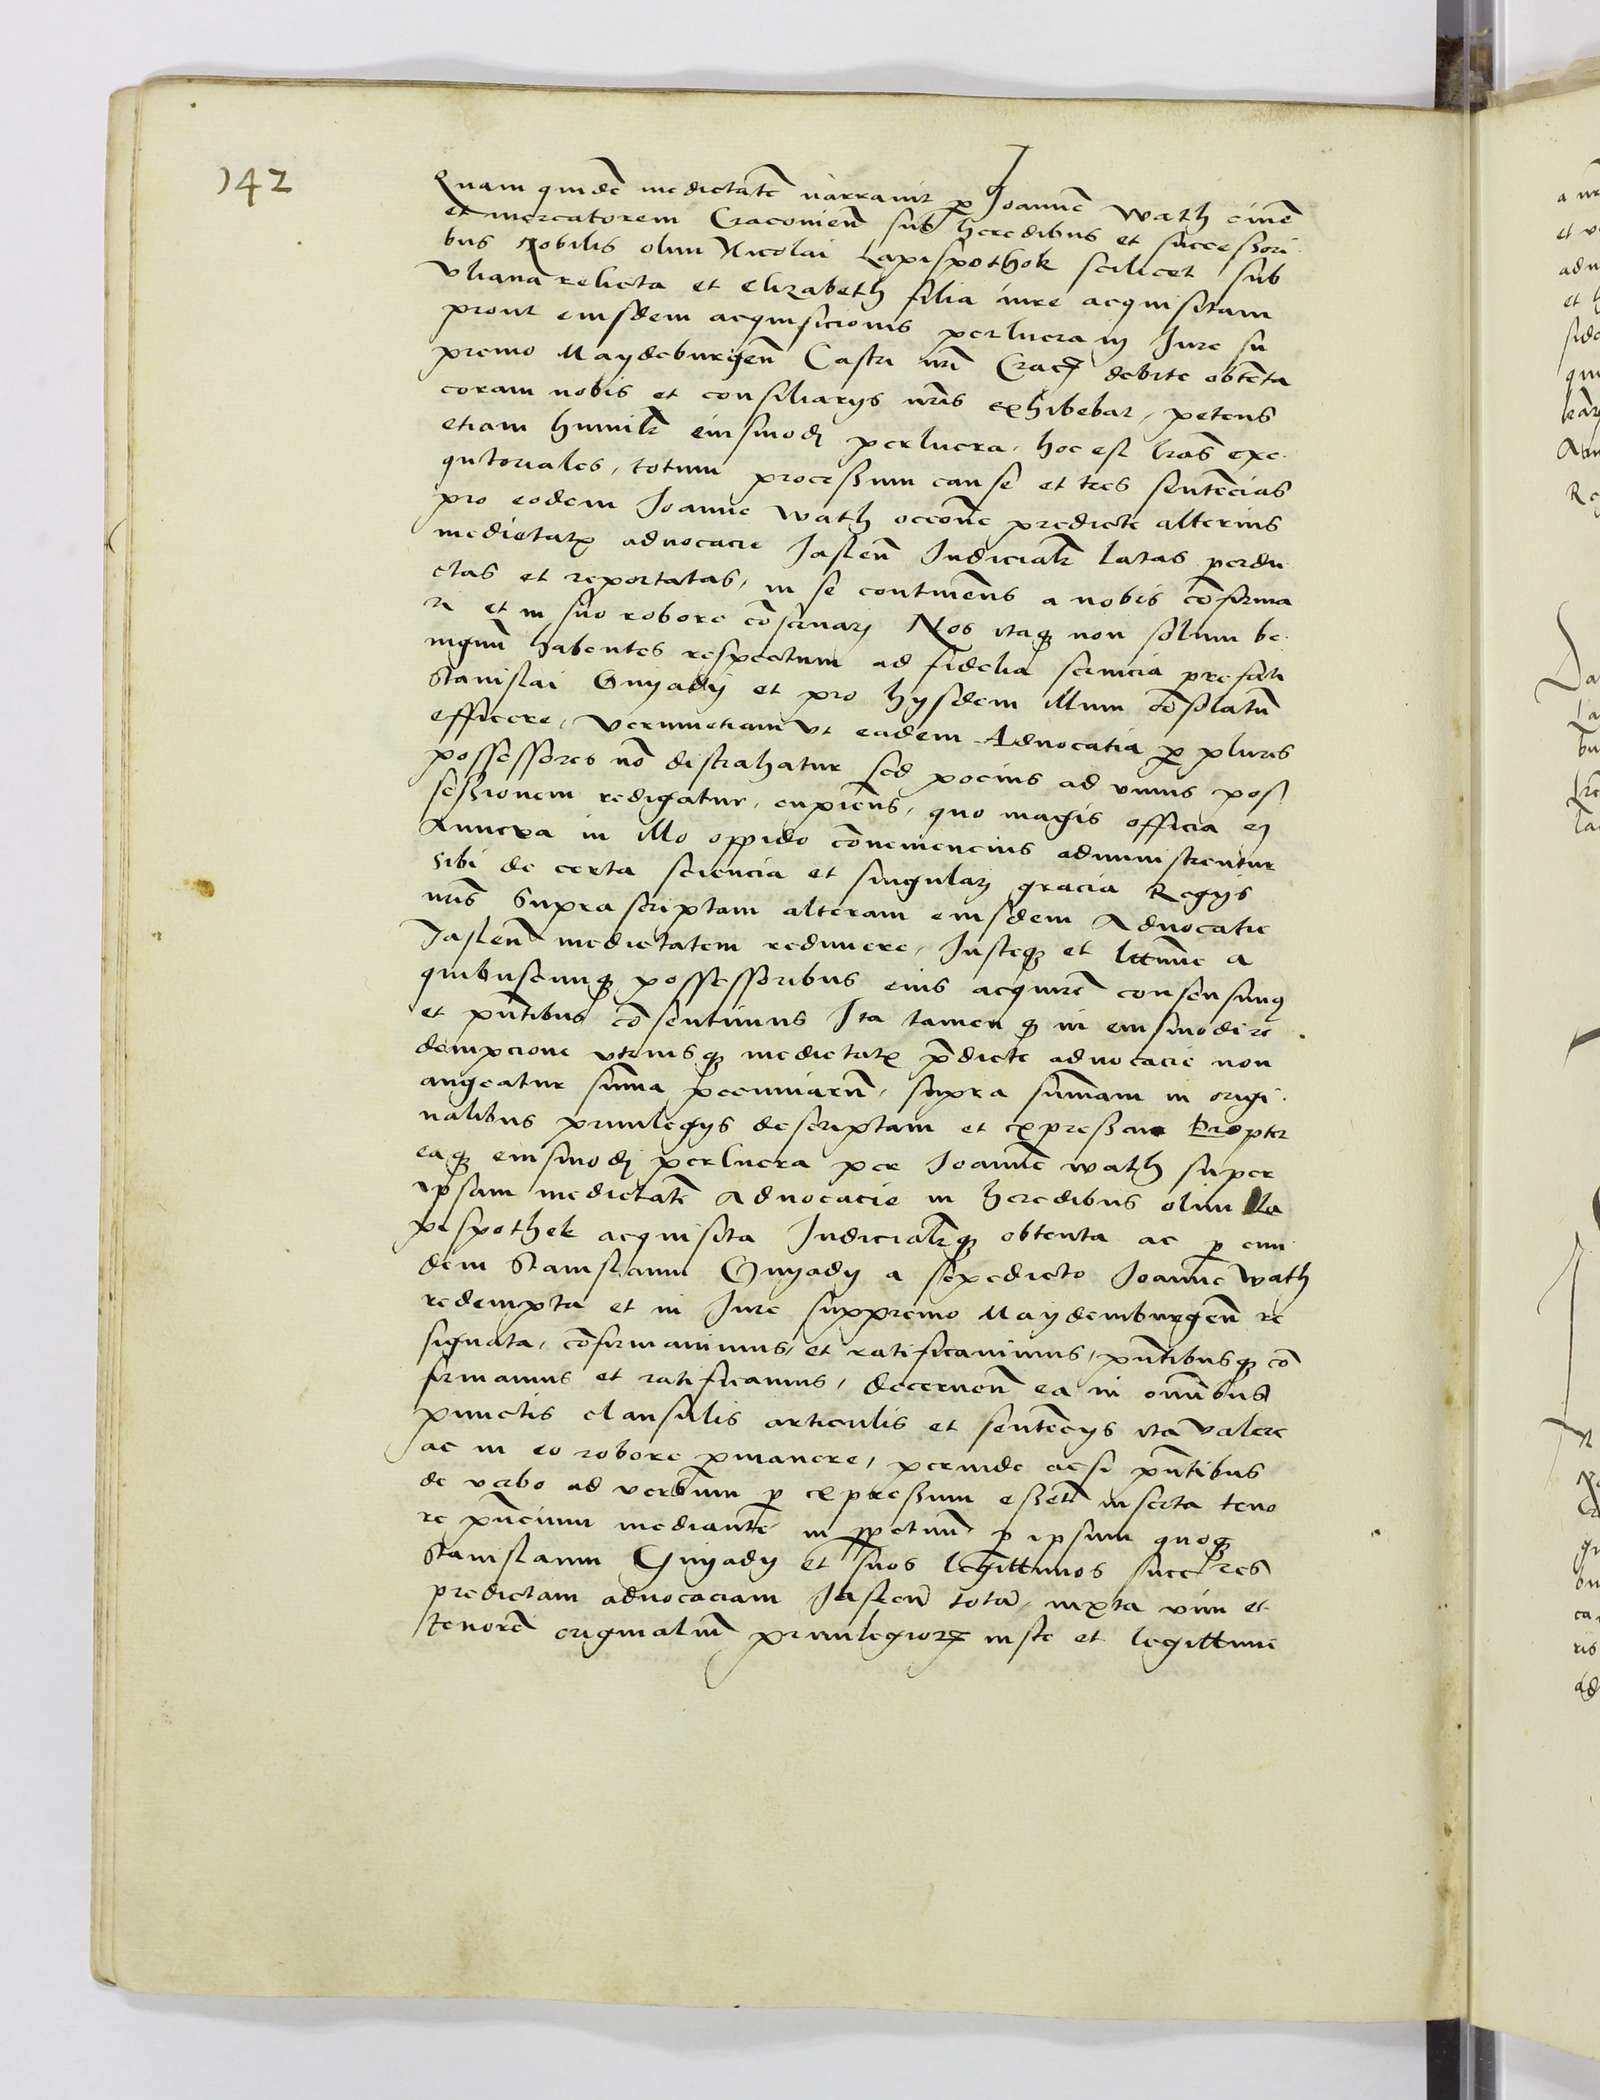 142
Quam quidē medietatē narravit ꝑ Joannē Wath civē
et mercatorem Cracovieñ sub heredibus et successori
bus Nobilis olim Nicolai Lapispothok scilicet sub
Vliana relicta et Elizabeth filia iure acquisitam
prout eiusdem acquisicionis perlucra in Jure su
premo Maydeburgeñ Castri nrī Crac̄ debite obtēta
coram nobis et consiliarijs nrīs exhibebat, petens
etiam humilr̄ eiusmodi perlucra, hoc est lrās exe
qutoriales, totum processum cause et tres sentēcias
pro eodem Joanne Wath occōne predicte alterius
medietatꝭ advocacie Jasleñ Iudicialr̄ latas perdu
ctas et reportatas, in se continens a nobis cōfirma
ri et in suo robore cōservarj Nos itaqꝫ non solum be
nignū habentes respectum ad fidelia servicia prefati
Stanislai Gnyady et pro hysdem illum cōsolatū
efficere, verumetiam vt eadem Advocatia ꝑ plures
possessores nō distrahatur sed pocius ad vnius pos
sessionem redigatur, cupiens, quo magis officia ej
Annexa in illo oppido cōveniencius administrentur
sibi de certa sciencia et singularj gracia Regijs
nrīs Suprascriptam alteram eiusdem Advocatie
Jasleñ medietatem redimere, Justeqꝫ et lttīme a
quibuscumqꝫ possessoribus eius acquirē consensimꝰ
et pñtibus cōsentimus Ita tamen qꝫ in eiusmodi re
dempcione vtriusqꝫ medietatꝭ p̄dicte advocacie non
augeatur sūma pecuniarū, supra sūmam in origi
nalibus privilegijs descriptam et expressam Propter
eaqꝫ eiusmodj perlucra per Joannē Wath super
ipsam medietatē Advocacie in heredibus olim La
pispothek acquisita Iudicialr̄qꝫ obtenta ac ꝑ eun
dem Stanislaum Gnyady a sepedicto Joanne Wath
redempta et in Jure suppremo Maydemburgeñ re
signata, cōfirmavimus, et ratificavimus, pñtibusqꝫ cō
firmamus et ratificamus, decernen̄ ea in omībus
punctis clausulis articulis et sentēcijs ita valere
ac in eo robore ꝑmanere, perinde acsi pñtibus
de verbo ad verbum ꝑ expressum essēt inserta teno
re pñcium mediante in ꝑpetuū ꝑ ipsum quoqꝫ
Stanislaum Gnyady et suos legittimos succrēs
predictam advocaciam Jasleñ totā, iuxta vim et
tenorē originaliū privilegioꝝ iuste et legittime